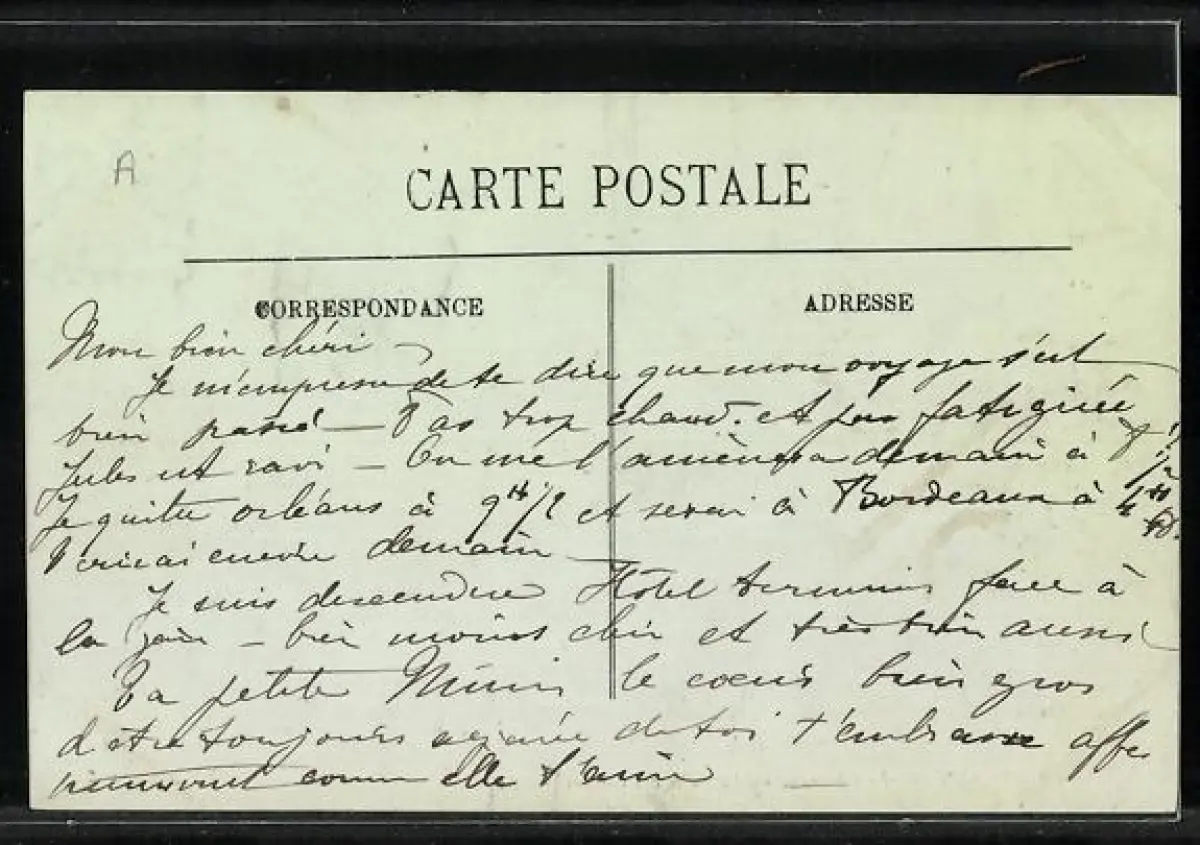 A
CARTE POSTALE
CORRESPONDANCE
ADRESSE
Mon bien chéri —
Je m'empresse de te dire que mon voyage s'est
bien passé — Pas trop chaud. et pas fatiguée
Jules est ravi — On me l'amènera demain à
Je quitte orléans à 9 H 1/2 et serai à Bordeaux à 4
T'ecrirai encore demain
Je suis descendue Hôtel terminus face à
la gare — bien moins cher et très bien aussi
Ta petite le coeur bien gros
d'être toujours de toi t'embrasse affec
comme elle t'aime